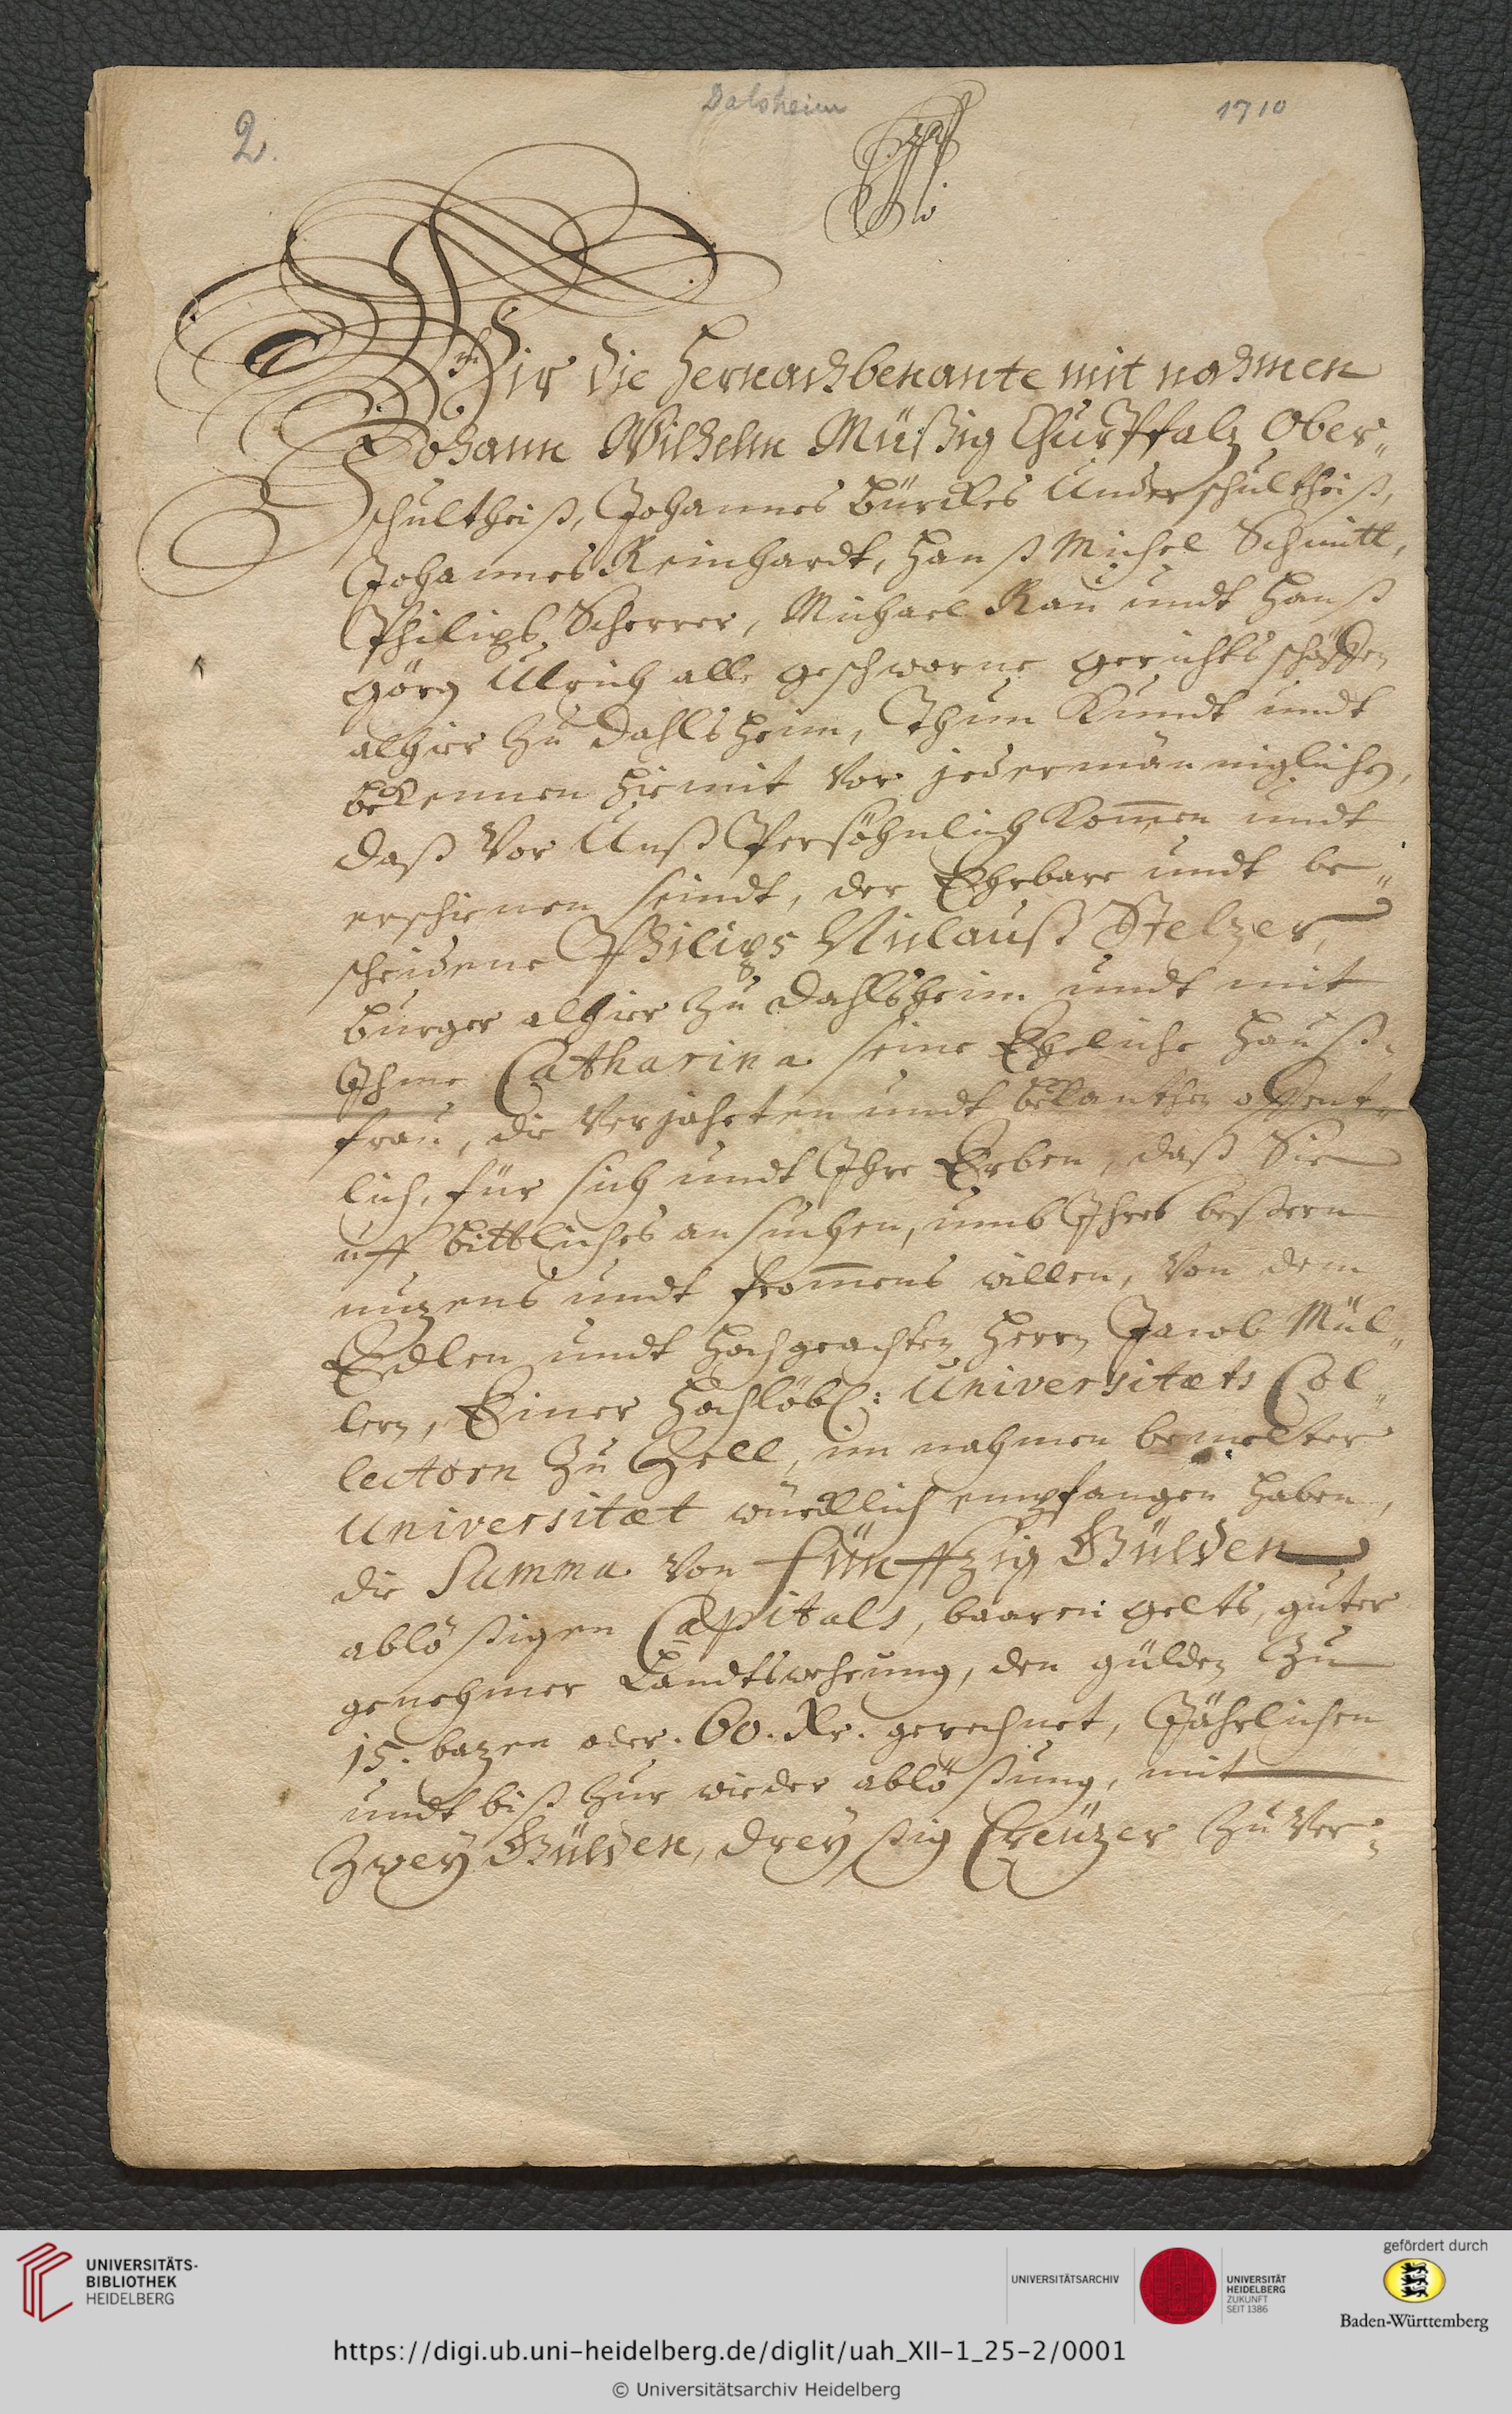 Dalsheim
1710
2.
Wir die hernachbenante mit nahmen
Johann Wilhelm Müßig ChurPfalz Ober„
schultheiß, Johannes Bürckes Underschultheiß,
Johannes Reinhardt, Hanß Michel Schmitt,
Philips Scherrer, Michael Rau undt Hanß
Görg Ulrich alle geschworne gerichts schöffen
alhier zu Dahlsheim, Thun Kundt undt
bekennen hiemit vor jedermänniglichen,
daß vor Unß Persöhnlich kom̄en undt
erschienen seindt, der Ehrbare undt be„
scheidene Philips Niclauß Stelzer,
burger alhier zu Dahlsheim undt mit
Ihme Catharina seine Eheliche Hauß„
frau, die verjahrten undt bekanthen offent„
lich, für sich undt Ihre Erben, daß Sie
uff bittliches ansuchen, umb Ihres beßern
nuzens undt from̄ens willen, von dem
Edlen undt Hochgeachten Herrn Jacob Mül„
lern, Einer Hochlöbl: Universitæts Col„
lectorn zu Zell, im nahmen bemelter
Universitæt würcklich empfangen haben,
die Summa von fünffzig Gülden
ablößigen Capitals, baaren gelts, guter
genehmer Landtswehrung, den gülden zu
15. bazen oder. 60. Xr. gerechnet, Jährlichen
undt biß zur wieder ablößung, mit
Zwey Gülden, dreyßig Creüzer zu ver„
UNIVERSITÄTS-
BIBLIOTHEK
HEIDELBERG
UNIVERSITÄTSARCHIV
UNIVERSITÄT
HEIDELBERG
ZUKUNFT
SEIT 1386
gefördert durch
Baden-Württemberg
https://digi.ub.uni-heidelberg.de/diglit/uah_XII-1_25-2/0001
© Universitätsarchiv Heidelberg